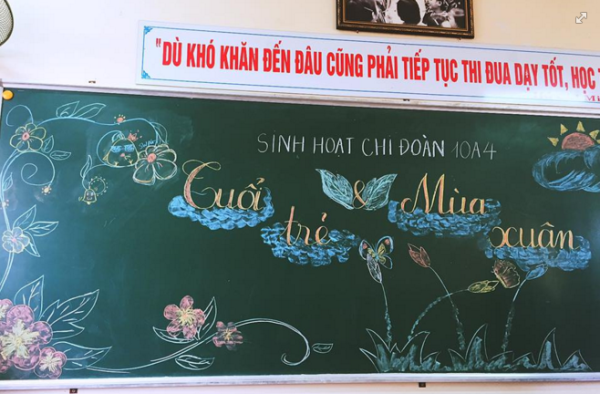 "DÙ KHÓ KHĂN ĐẾN ĐÂU CŨNG PHẢI TIẾP TỤC THI ĐUA DẠY TỐT, HỌC
SINH HOẠT CHI ĐOÀN 10A4
Tuổi trẻ & Mùa xuân